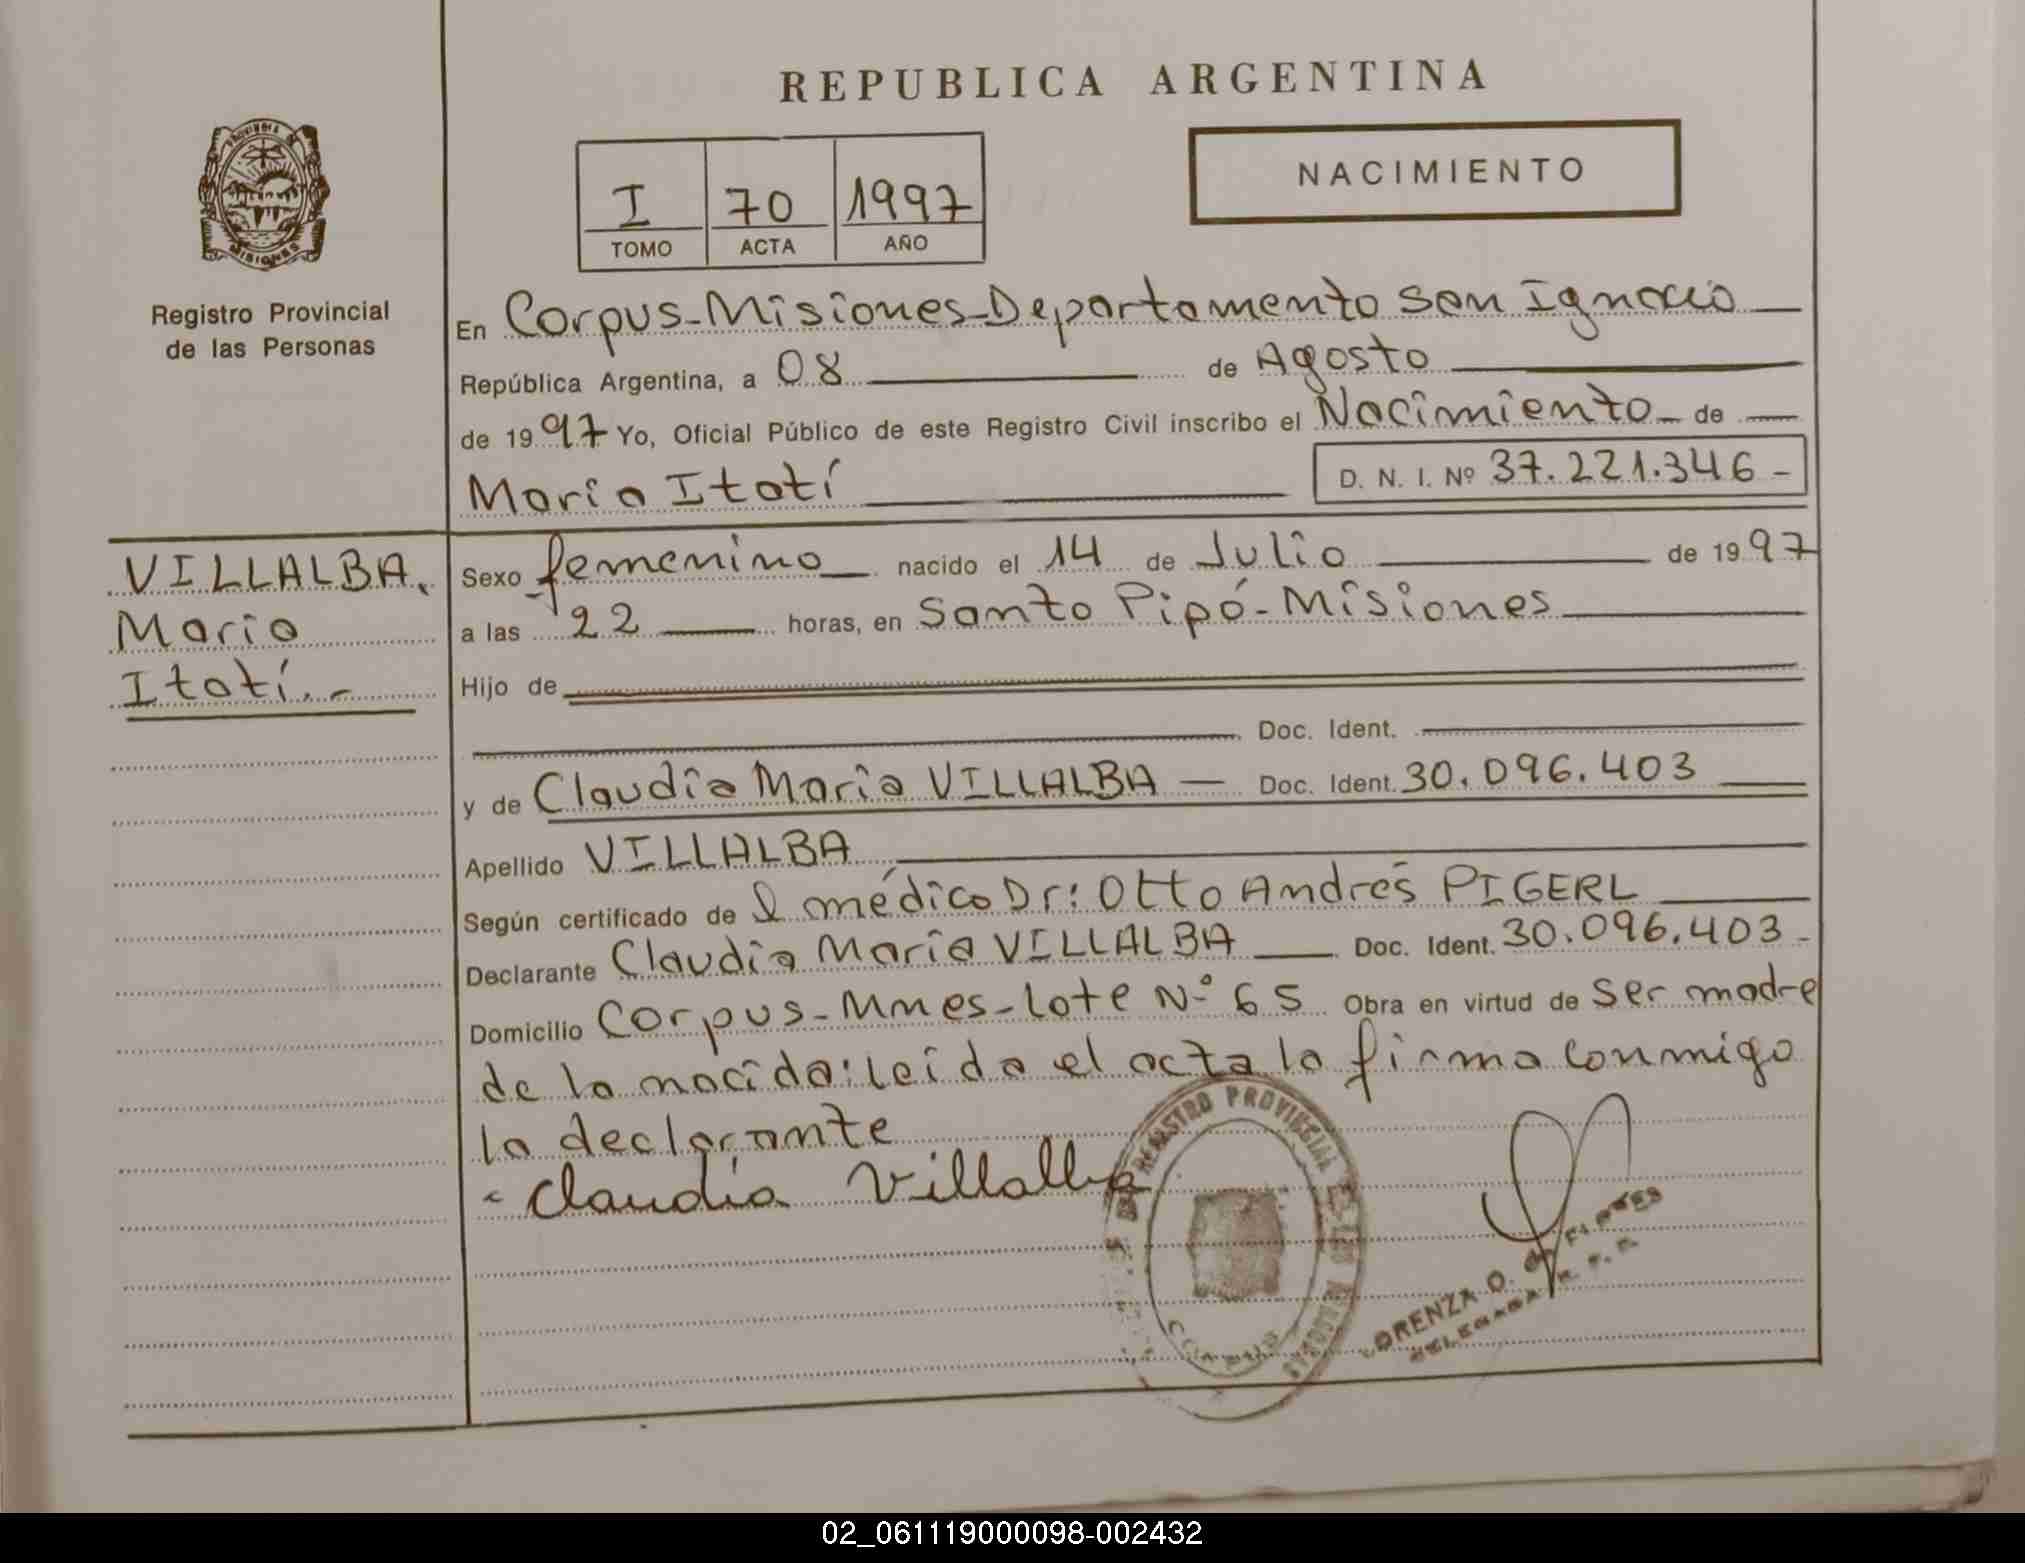 REPUBLICA ARGENTINA
PROVINCIA DE
MISIONES
Registro Provincial
de las Personas
I 70 1997
TOMO ACTA AÑO
NACIMIENTO
En Corpus-Misiones-Departamento San Ignacio
República Argentina, a 08 de Agosto
de 1997 Yo, Oficial Público de este Registro Civil inscribo el Nacimiento de
María Itatí
D. N. I. Nº 37.221.346-
VILLALBA,
María
Itatí.-
Sexo femenino nacido el 14 de Julio de 1997
a las 22 horas, en Santo Pipó-Misiones
Hijo de
Doc. Ident.
y de Claudia María VILLALBA Doc. Ident. 30.096.403
Apellido VILLALBA
Según certificado de l médico Dr: Otto Andrés PIGERL
Declarante Claudia María VILLALBA Doc. Ident. 30.096.403-
Domicilio Corpus-Mnes-Lote Nº 65 Obra en virtud de ser madre
de la nacida: leída el acta la firma conmigo
la declarante
- Claudia Villalba
REGISTRO PROVINCIAL DE LAS PERSONAS
LORENZA O. de FLORES
DELEGADA R. P. P.
02_061119000098-002432